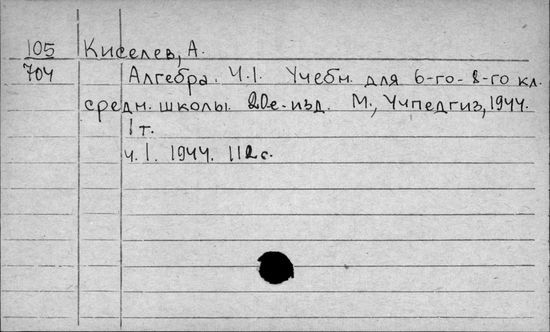 105 Киселев, А.
704 Алгебра. Ч.I. Учебн. для 6-го-8-го кл.
средн. школы. 20е-изд. М., Учпедгиз, 1944.
1 т.
ч. I. 1944. 112 с.